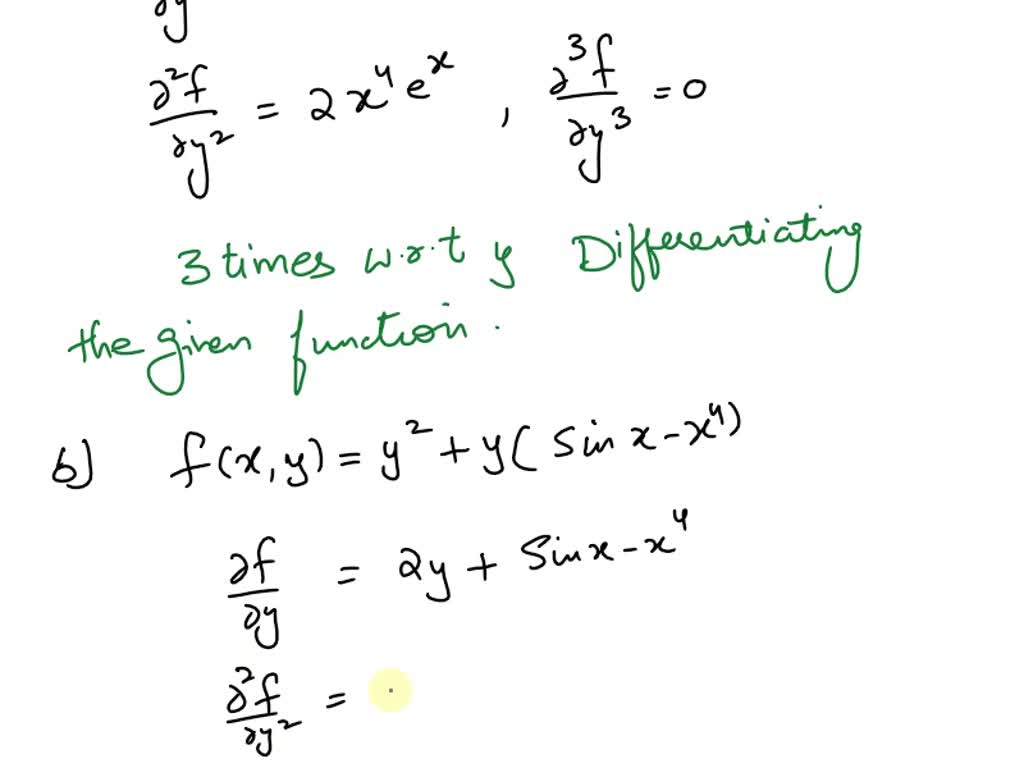 ∂y
∂²f/∂y² = 2x⁴eˣ , ∂³f/∂y³ = 0
3 times w.r.t y Differentiating
the given function.
b) f(x,y) = y² + y( Sin x - x⁴)
∂f/∂y = 2y + Sin x - x⁴
∂²f/∂y² =